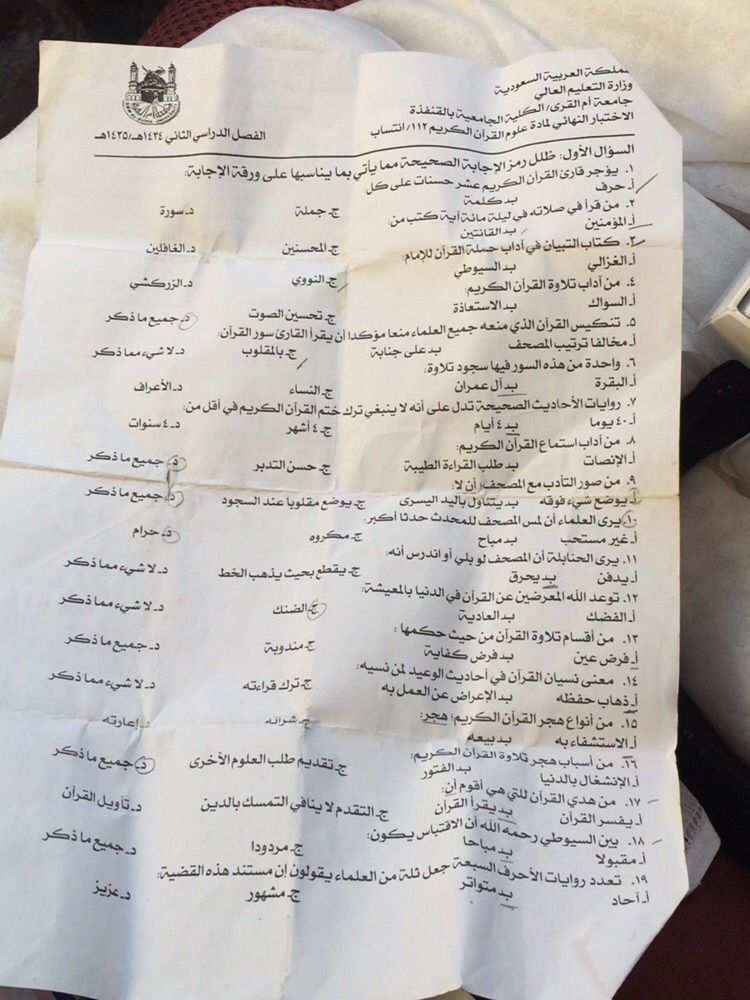 المملكة العربية السعودية
وزارة التعليم العالي
جامعة أم القرى/ الكلية الجامعية بالقنفذة
الاختبار النهائي لمادة علوم القرآن الكريم ١١٢/ انتساب
الفصل الدراسي الثاني ١٤٣٤هـ/١٤٣٥هـ
السؤال الأول: ظلل رمز الإجابة الصحيحة مما يأتي بما يناسبها على ورقة الإجابة:
١. يؤجر قارئ القرآن الكريم عشر حسنات على كل
أ- حرف ب- كلمة ج- جملة د- سورة
٢. من قرأ في صلاته في ليلة مائة آية كتب من:
أ- المؤمنين ب- القانتين ج- المحسنين د- الغافلين
٣. كتاب التبيان في آداب حملة القرآن للإمام:
أ- الغزالي ب- السيوطي ج- النووي د- الزركشي
٤. من آداب تلاوة القرآن الكريم:
أ- السواك ب- الاستعاذة ج- تحسين الصوت د- جميع ما ذكر
٥. تنكيس القرآن الذي منعه جميع العلماء منعا مؤكدا أن يقرأ القارئ سور القرآن:
أ- مخالفا ترتيب المصحف ب- على جنابة ج- بالمقلوب د- لا شيء مما ذكر
٦. واحدة من هذه السور فيها سجود تلاوة:
أ- البقرة ب- آل عمران ج- النساء د- الأعراف
٧. روايات الأحاديث الصحيحة تدل على أنه لا ينبغي ترك ختم القرآن الكريم في أقل من:
أ- ٤٠ يوما ب- ٤ أيام ج- ٤ أشهر د- ٤ سنوات
٨. من آداب استماع القرآن الكريم:
أ- الإنصات ب- طلب القراءة الطيبة ج- حسن التدبر د- جميع ما ذكر
٩. من صور التأدب مع المصحف؛ أن لا:
أ- يوضع شيء فوقه ب- يتناول باليد اليسرى ج- يوضع مقلوبا عند السجود د- جميع ما ذكر
١٠. يرى العلماء أن لمس المصحف للمحدث حدثا أكبر:
أ- غير مستحب ب- مباح ج- مكروه د- حرام
١١. يرى الحنابلة أن المصحف لو بلي أو اندرس أنه:
أ- يدفن ب- يحرق ج- يقطع بحيث يذهب الخط د- لا شيء مما ذكر
١٢. توعد الله المعرضين عن القرآن في الدنيا بالمعيشة:
أ- الفضك ب- العادية ج- الضنك د- لا شيء مما ذكر
١٣. من أقسام تلاوة القرآن من حيث حكمها :
أ- فرض عين ب- فرض كفاية ج- مندوبة د- جميع ما ذكر
١٤. معنى نسيان القرآن في أحاديث الوعيد لمن نسيه:
أ- ذهاب حفظه ب- الإعراض عن العمل به ج- ترك قراءته د- لا شيء مما ذكر
١٥. من أنواع هجر القرآن الكريم؛ هجر:
أ- الاستشفاء به ب- بيعه ج- شرائه د- إعارته
١٦. من أسباب هجر تلاوة القرآن الكريم:
أ- الإنشغال بالدنيا ب- الفتور ج- تقديم طلب العلوم الأخرى د- جميع ما ذكر
١٧. من هدي القرآن للتي هي أقوم أن:
أ- يفسر القرآن ب- يقرأ القرآن ج- التقدم لا ينافي التمسك بالدين د- تأويل القرآن
١٨. بين السيوطي رحمه الله أن الاقتباس يكون:
أ- مقبولا ب- مباحا ج- مردودا د- جميع ما ذكر
١٩. تعدد روايات الأحرف السبعة جعل ثلة من العلماء يقولون إن مستند هذه القضية:
أ- آحاد ب- متواتر ج- مشهور د- عزيز